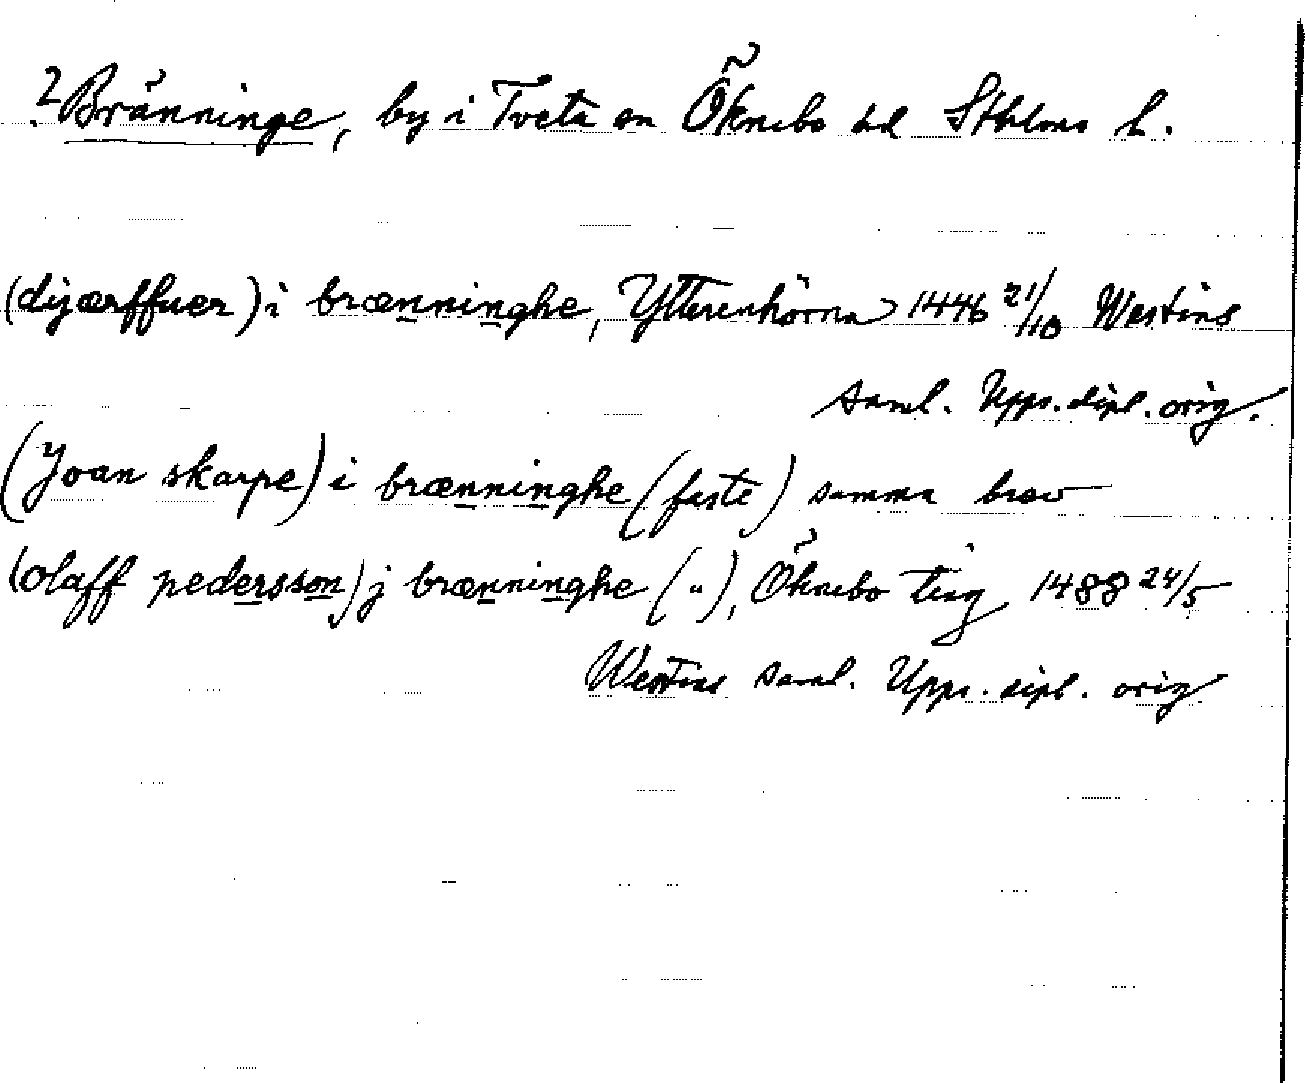 ? Bränninge, by i Tveta sn Öknebo hd Sthlms l.
(dijærffuer) i brænninghe, Ytterenhörna 1446 21/10 Westins
saml. Upps. dipl. orig.
(Joan skarpe) i brænninghe (faste) samma brev
(olaff pedersson) j brænninghe ("), Öknebo ting 1488 24/5
Westins saml. Upps. dipl. orig